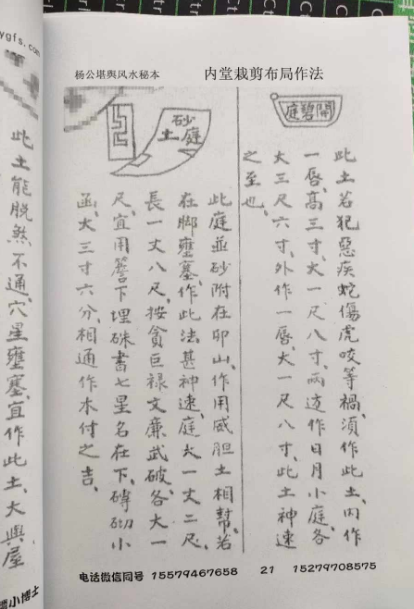 ygfs.com
杨公堪舆风水秘本 内堂栽剪布局作法
開碧庭
此土若犯惡疾蛇傷虎咬等禍須作此土內作
一唇高三寸大一尺八寸兩边作日月小庭各
大三尺六寸外作一唇大一尺八寸此土神速
之至也
砂庭土
此庭並砂附在卯山作用威胆土相幫若
在脚壅塞作此法甚神速庭大一丈二尺
長一丈八尺按貪巨禄文廉武破各大一
尺宜用簷下埋硃書七星名在下磚砌小
函大三寸六分相通作木付之吉
此土能脱煞不通穴星壅塞宜作此土大與屋
小博士
电话微信同号 15579467658 21 15279708575